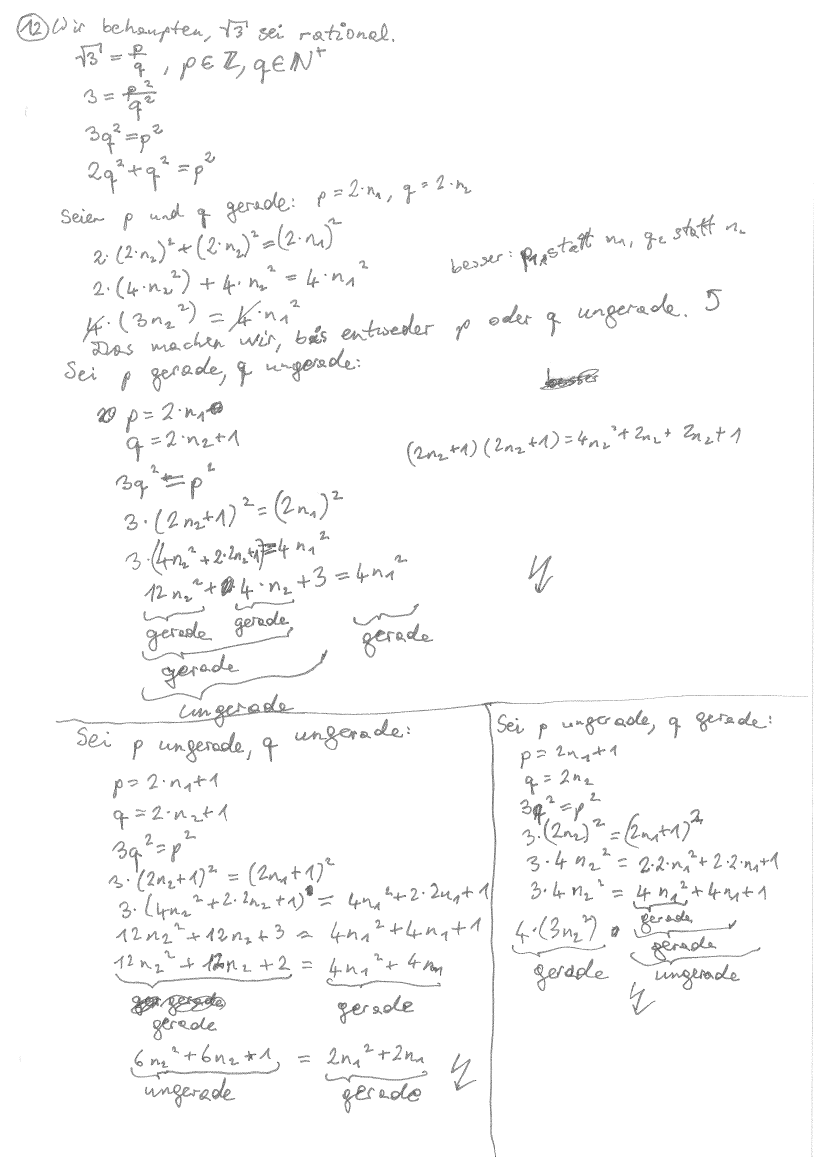 12 Wir behaupten, √3 sei rational.
√3 = p/q, p ∈ ℤ, q ∈ ℕ⁺
3 = p²/q²
3q² = p²
2q² + q² = p²
Seien p und q gerade: p = 2·n₁, q = 2·n₂
2·(2·n₂)² + (2·n₂)² = (2·n₁)²
besser: p₁ statt n₁, q₂ statt n₂
2·(4·n₂²) + 4·n₂² = 4·n₁²
4·(3n₂²) = 4·n₁²
Das machen wir, bis entweder p oder q ungerade.
Sei p gerade, q ungerade:
p = 2·n₁
q = 2·n₂+1
(2n₂+1)(2n₂+1) = 4n₂² + 2n₂ + 2n₂ + 1
3q² = p²
3·(2n₂+1)² = (2n₁)²
3·(4n₂² + 2·2n₂+1) = 4n₁²
12n₂² + 4·n₂ + 3 = 4n₁²
gerade gerade gerade
gerade
ungerade
Sei p ungerade, q ungerade:
p = 2·n₁+1
q = 2·n₂+1
3q² = p²
3·(2n₂+1)² = (2n₁+1)²
3·(4n₂² + 2·2n₂+1) = 4n₁² + 2·2n₁+1
12n₂² + 12n₂ + 3 = 4n₁² + 4n₁ + 1
12n₂² + 12n₂ + 2 = 4n₁² + 4n₁
gerade gerade
6n₂² + 6n₂ + 1 = 2n₁² + 2n₁
ungerade gerade
Sei p ungerade, q gerade:
p = 2n₁+1
q = 2n₂
3q² = p²
3·(2n₂)² = (2n₁+1)²
3·4n₂² = 2·2·n₁² + 2·2·n₁+1
3·4n₂² = 4n₁² + 4n₁+1
4·(3n₂²) gerade
gerade
gerade ungerade